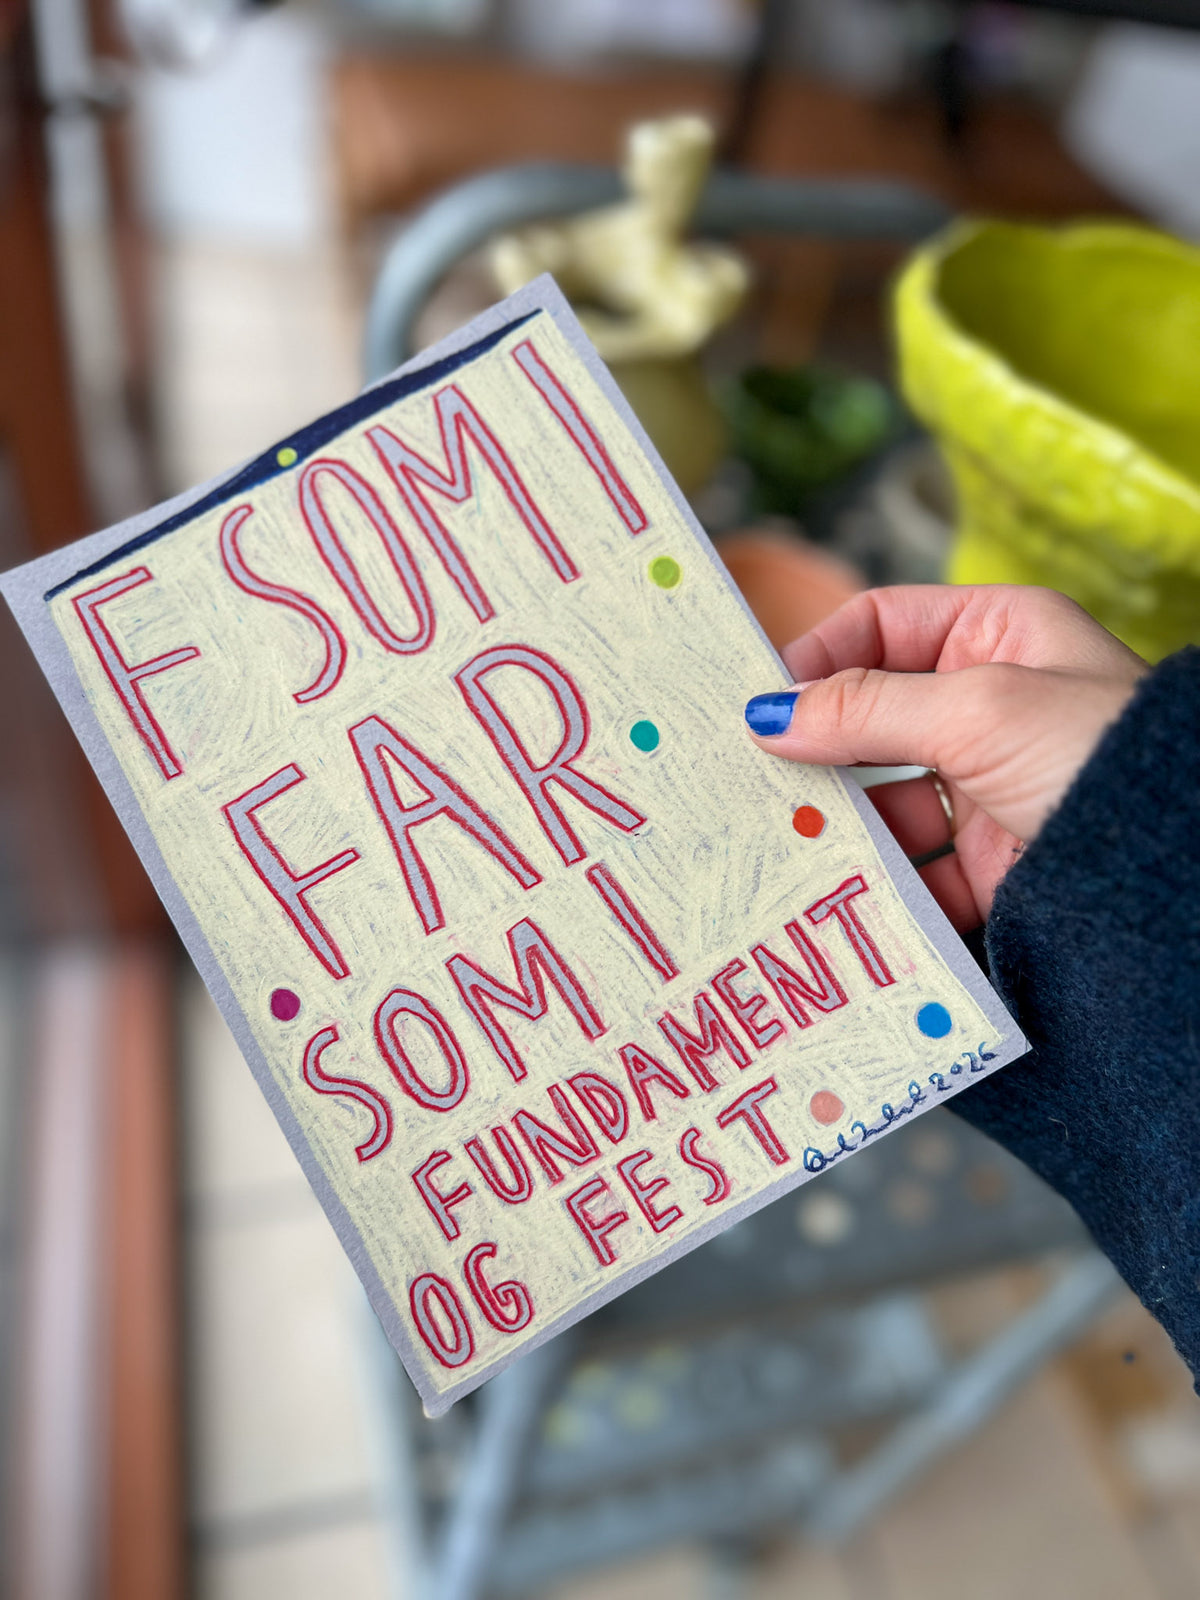 F SOM I
FAR
SOM I
FUNDAMENT
OG FEST
2026